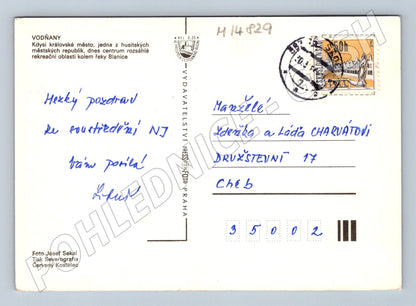 M 14829
VODŇANY
Kdysi královské město, jedna z husitských
městských republik, dnes centrum rozsáhlé
rekreační oblasti kolem řeky Blanice
Hezký pozdrav
ze soustředění NJ
Vám posílá
VYDAVATELSTVÍ PRESSFOTO PRAHA
Foto Josef Sekal
Tisk Severografia
Červený Kostelec
Manželé
Zdeňka a Láďa CHARVÁTOVI
DRUŽSTEVNÍ 17
Cheb
35002
POHLEDNICE - CECH